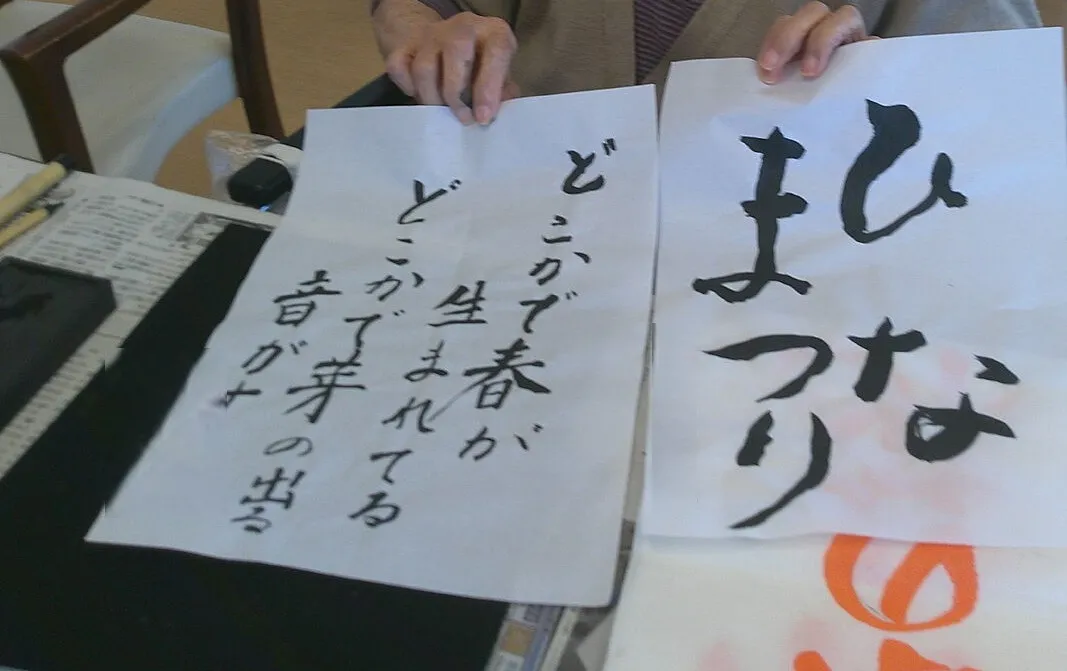 ひな
まつり
どこかで春が
生まれてる
どこかで芽の出る
音が
の